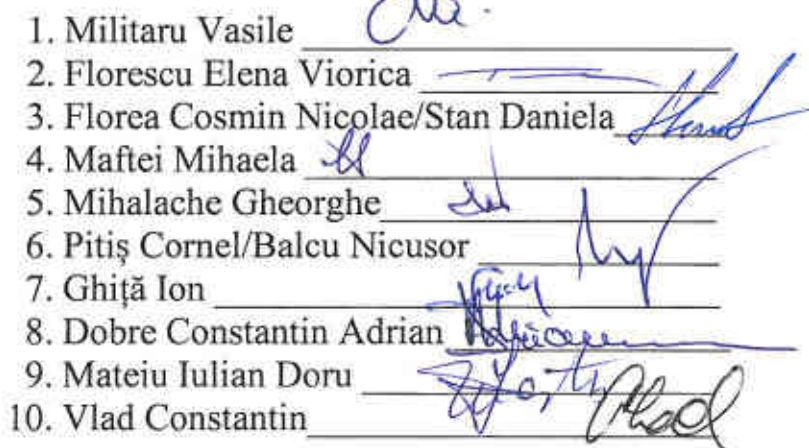 1. Militaru Vasile
2. Florescu Elena Viorica
3. Florea Cosmin Nicolae/Stan Daniela
4. Maftei Mihaela
5. Mihalache Gheorghe
6. Pitiș Cornel/Balcu Nicusor
7. Ghiță Ion
8. Dobre Constantin Adrian
9. Mateiu Iulian Doru
10. Vlad Constantin